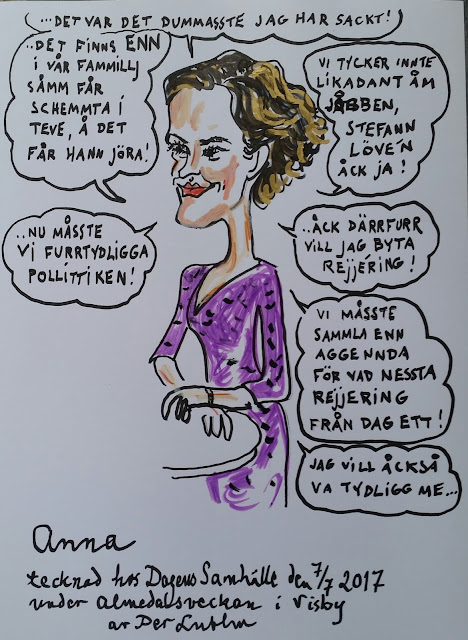 ...DET VAR DET DUMMASSTE JAG HAR SACKT!
..DET FINNS ENN
I VÅR FAMMILLJ
SÅMM FÅR
SCHEMMTA I
TEVE, Å DET
FÅR HANN JÖRA!
VI TYCKER INNTE
LIKADANT ÅM
JÅBBEN,
STEFANN
LÖVEN
ÅCK JA!
..NU MÅSSTE
VI FURRTYDLIGGA
POLLITTIKEN!
..ÅCK DÄRRFURR
VILL JAG BYTA
REJJERING!
VI MÅSSTE
SAMMLA ENN
AGGENNDA
FÖR VAD NESSTA
REJJERING
FRÅN DAG ETT!
JAG VILL ÅCKSÅ
VA TYDLIGG ME...
Anna
tecknad hos Dagens Samhälle den 7/7 2017
under almedalsveckan i Visby
av Per